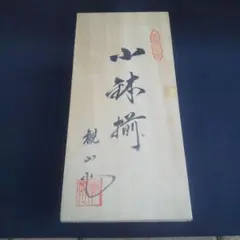 小鉢揃
観山